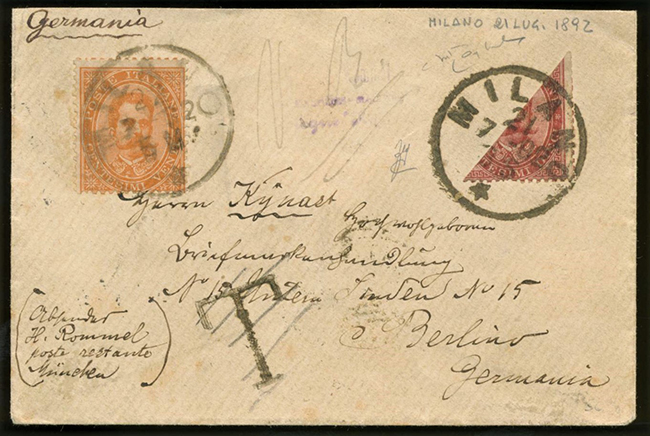 Germania
MILANO 21 LUG. 1892
POSTE ITALIANE
MILANO
MILAN
Herrn Kÿnast
Hochwohlgeboren
Briefmarkenhandlung
No 15 Untern Linden No 15
Berlino
Germania
T
(Absender
H. Rommel
poste restante
München)